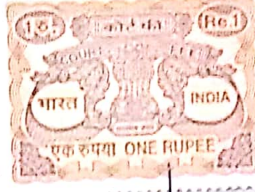 1रु. कोर्ट फी Re.1
COURT FEE
भारत INDIA
एक रुपया ONE RUPEE